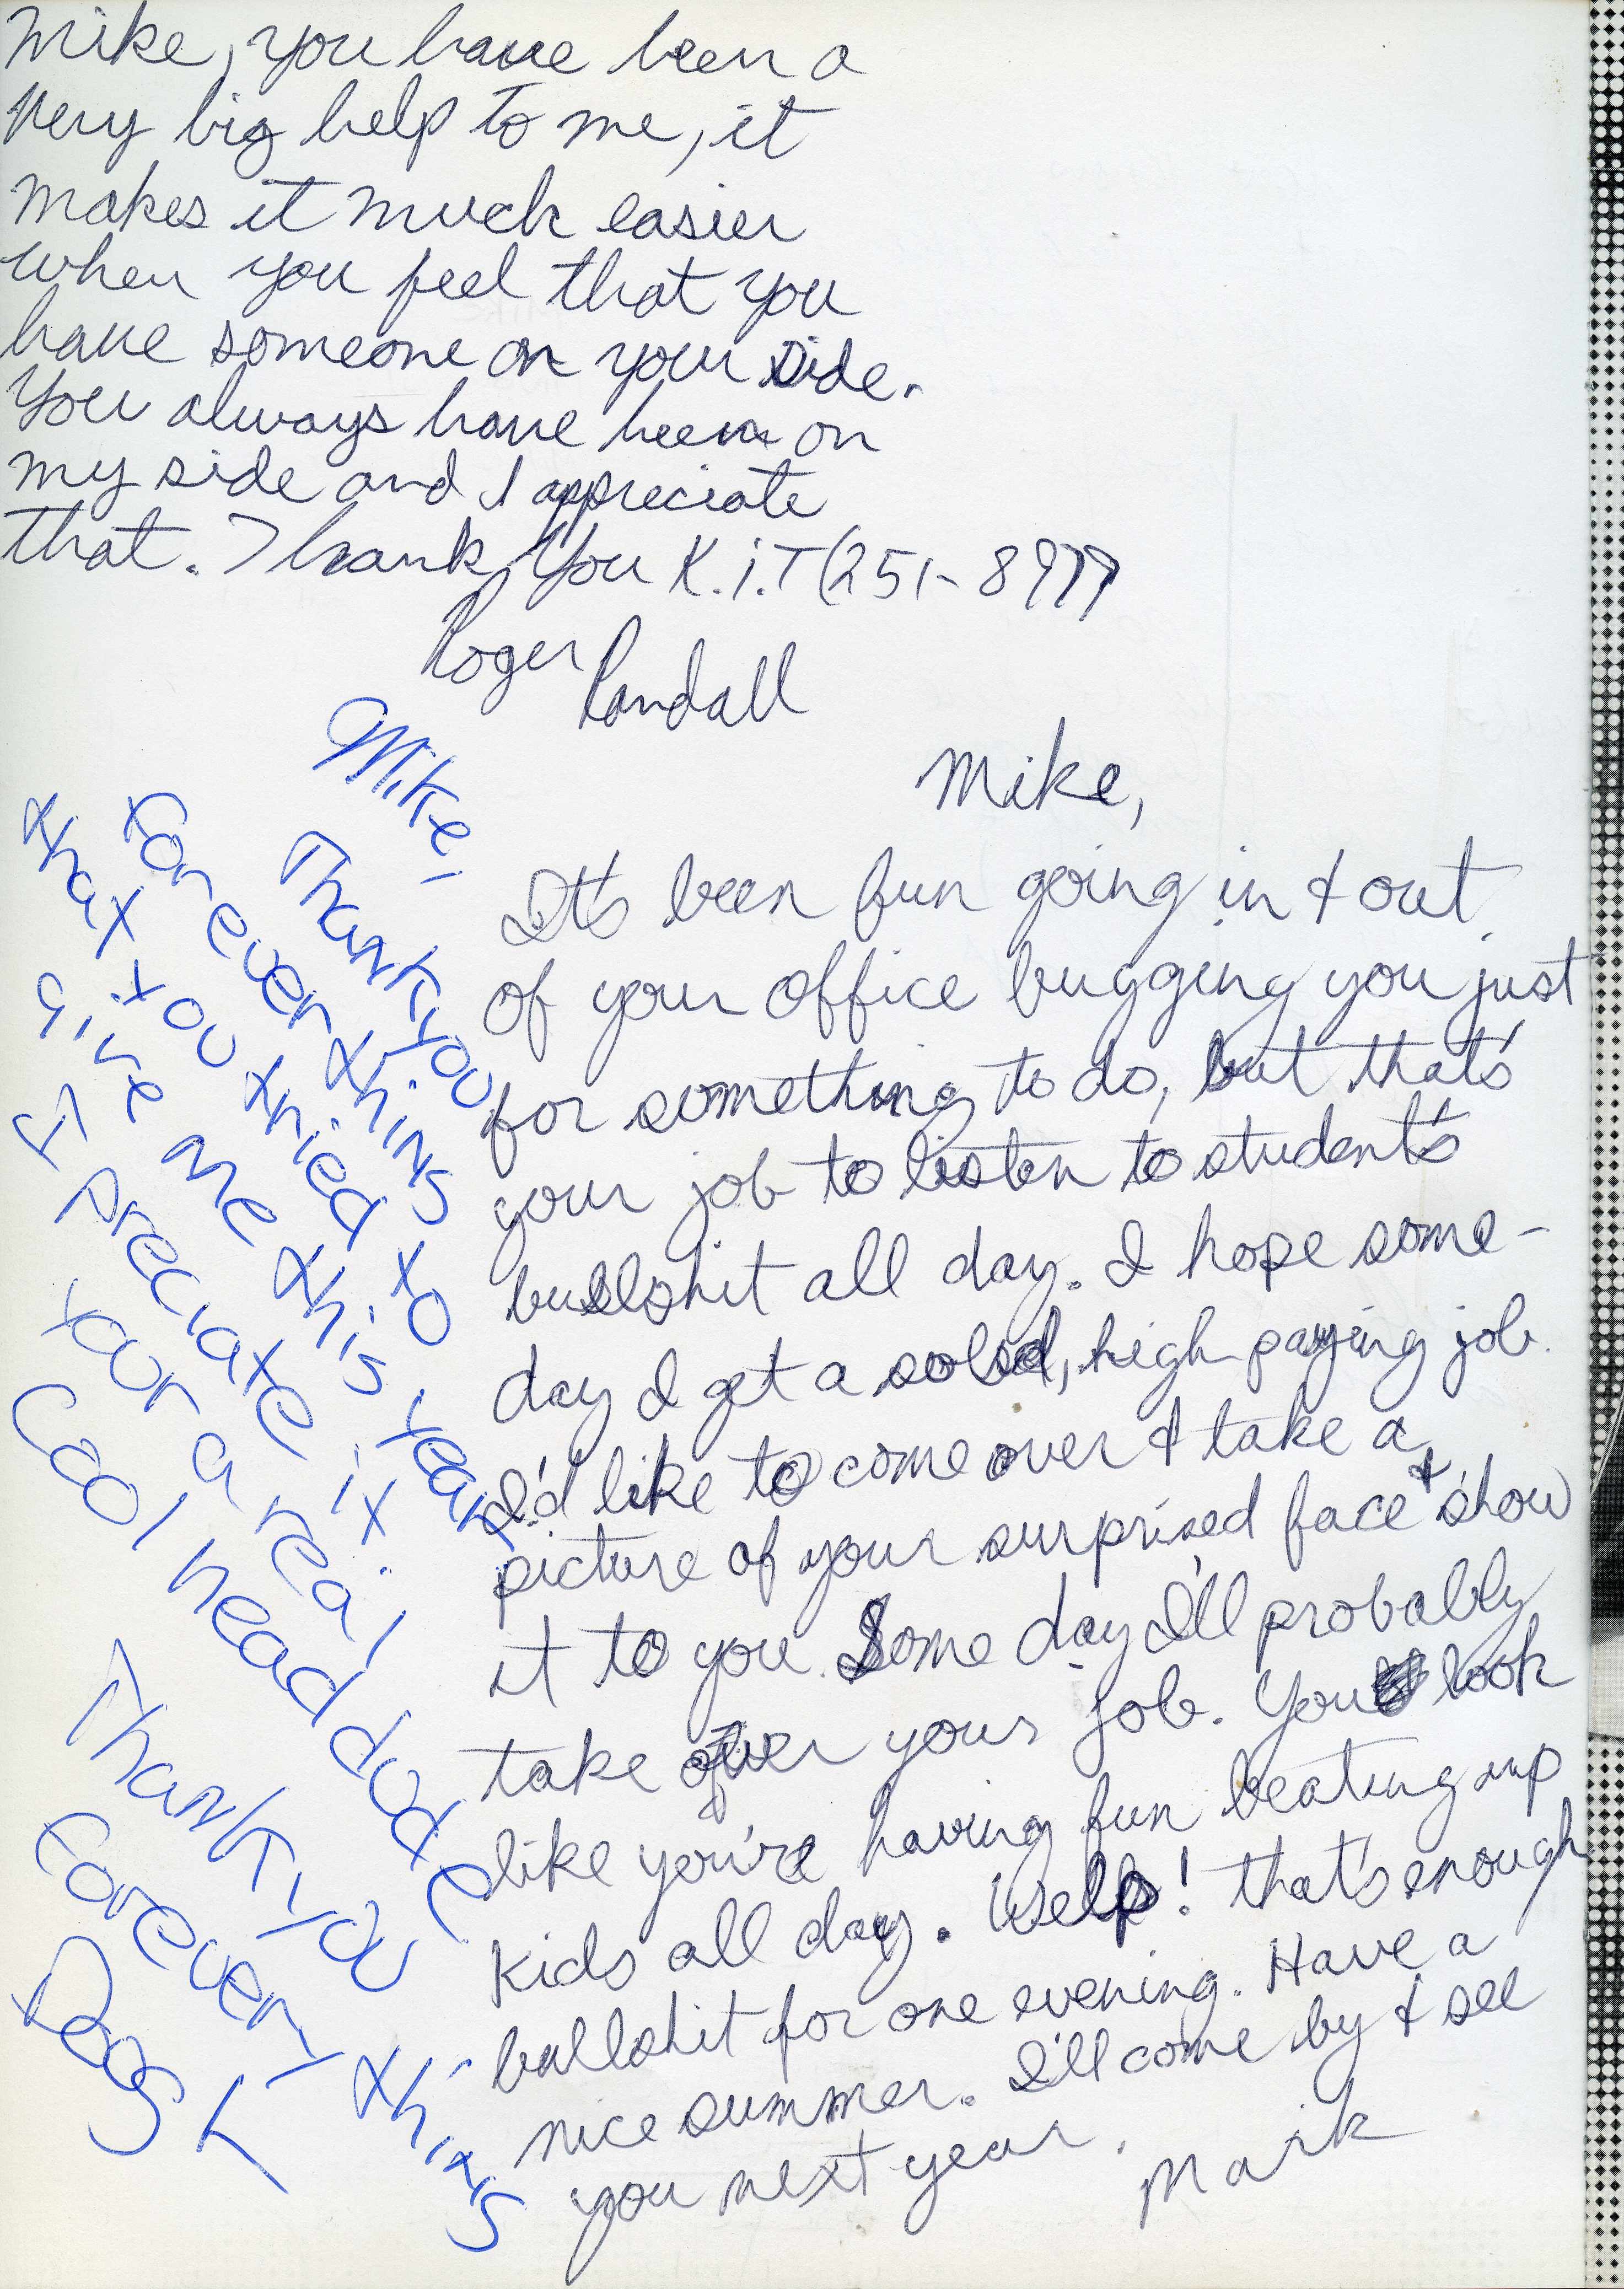 Mike, you have been a
very big help to me, it
makes it much easier
when you feel that you
have someone on your side.
You always have been on
my side and I appreciate
that. Thank you K.i.T (251-8977
Roger
Randall
Mike,
Thank you
for ever thing
that you tried to
give me this year
I Preciate it.
your a real
Cool head dude
Thank you
for every thing
Doog L
Mike,
It's been fun going in & out
of your office bugging you just
for something to do, but that's
your job to listen to student's
bullshit all day. I hope some-
day I get a solid, high paying job.
I'd like to come over & take a
picture of your surprised face & show
it to you. Some day I'll probably
take over your job. You look
like you're having fun beating up
kids all day. Welp! that's enough
bullshit for one evening. Have a
nice summer. I'll come by & see
you next year.
Mark